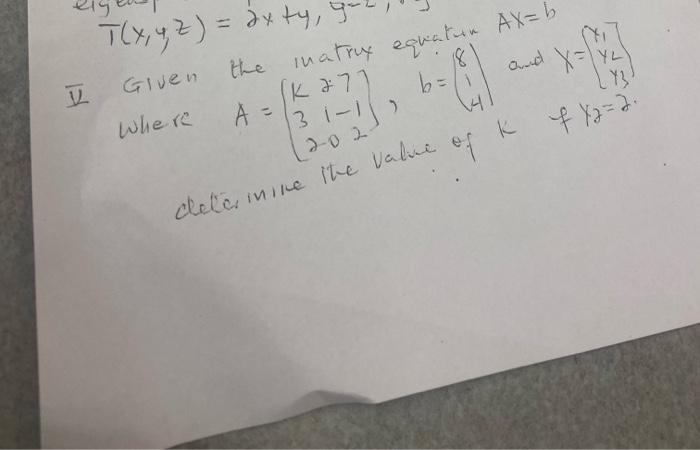 T(x,y,z) = 2x+y, y-z,
V Given the matrix equation AX=b
where A = (K 2 7 3 1 -1 2 0 2), b = (8 1 4) and X = [x1 x2 x3]
determine the value of K if x2=2.